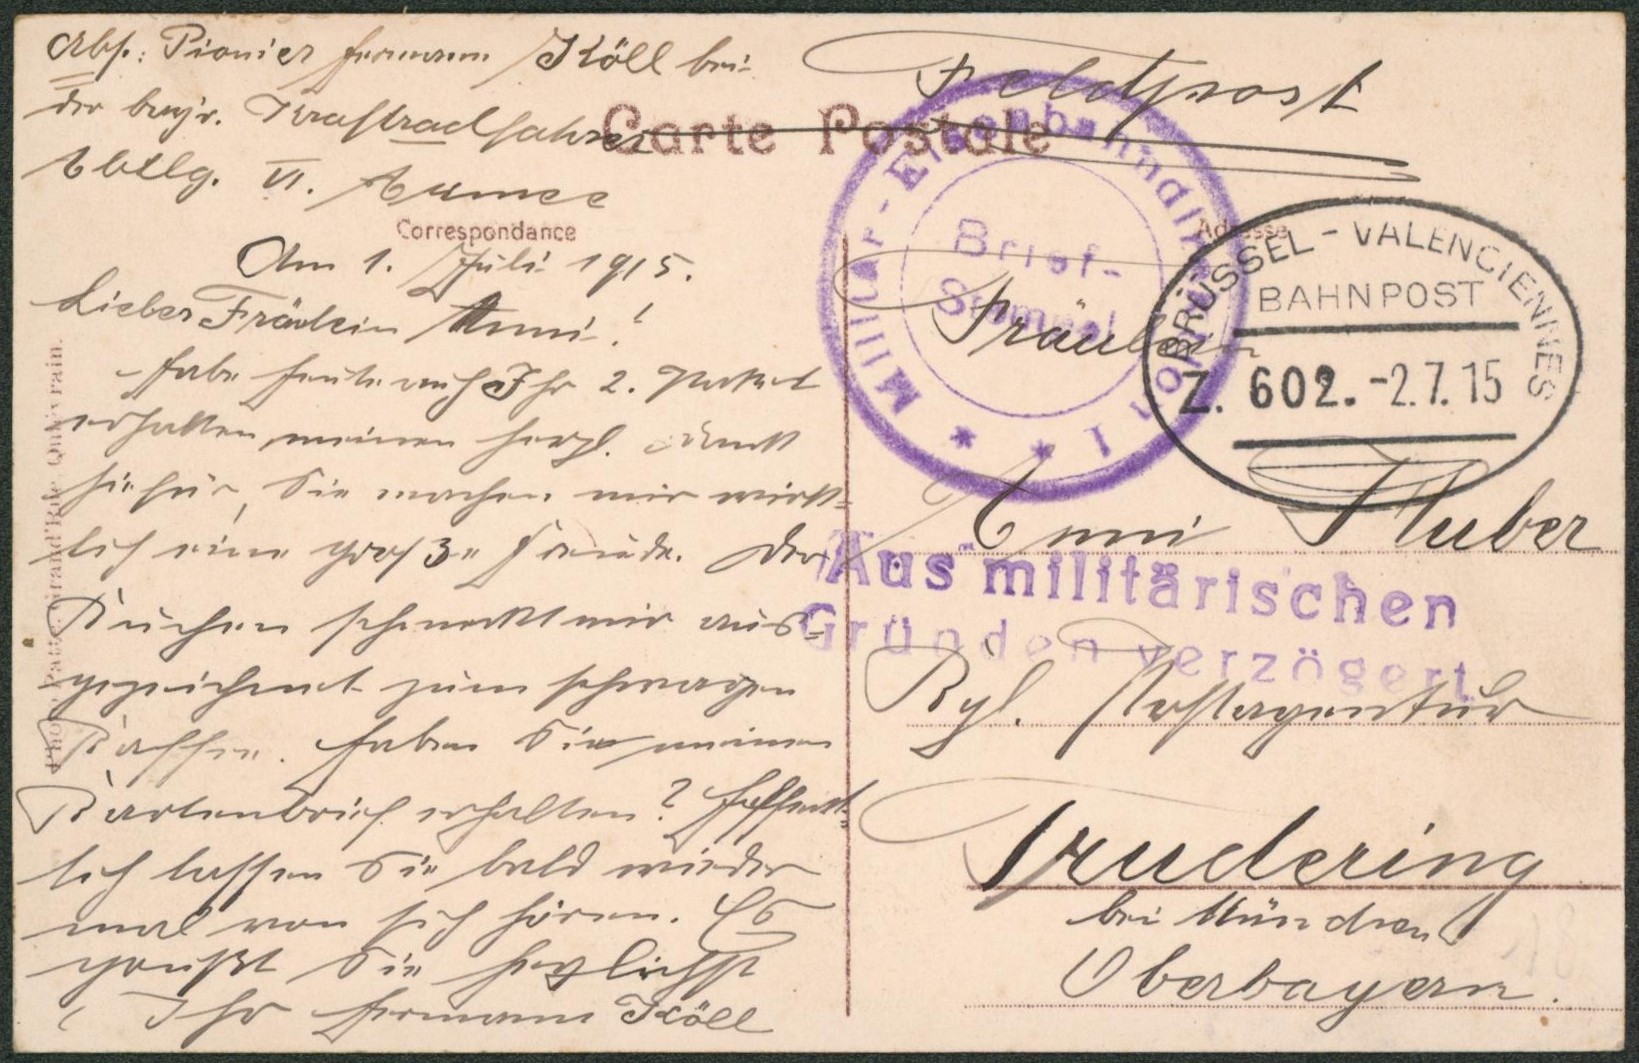 Abs: Pionier Hermann Köll bei
der bayr. Kraftradfahrer
Abtlg. VI. Armee
Carte Postale
Feldpost
Correspondance
Adresse
Am 1. Juli 1915.
Lieber Fräulein Anni!
Habe heute auch Ihr 2. Paket
erhalten, meinen herzl. Dank
hiefür, Sie machen mir wirk-
lich eine große Freude. Der
Kuchen schmeckt mir aus-
gezeichnet zum schwarzen
Kaffee. Haben Sie meinen
Kartenbrief erhalten? Hoffent-
lich lassen Sie bald wieder
mal von sich hören. Es
grüßt Sie herzlichst
Ihr Hermann Köll
Militär-Eisenbahndirektion 1
Brief-
Stempel
BRÜSSEL - VALENCIENNES
BAHNPOST
Z. 602. -2.7.15
Fräulein
Anni Huber
Aus militärischen
Gründen verzögert
Kgl. Postagentur
Trudering
bei München
Oberbayern.
Quiévrain.